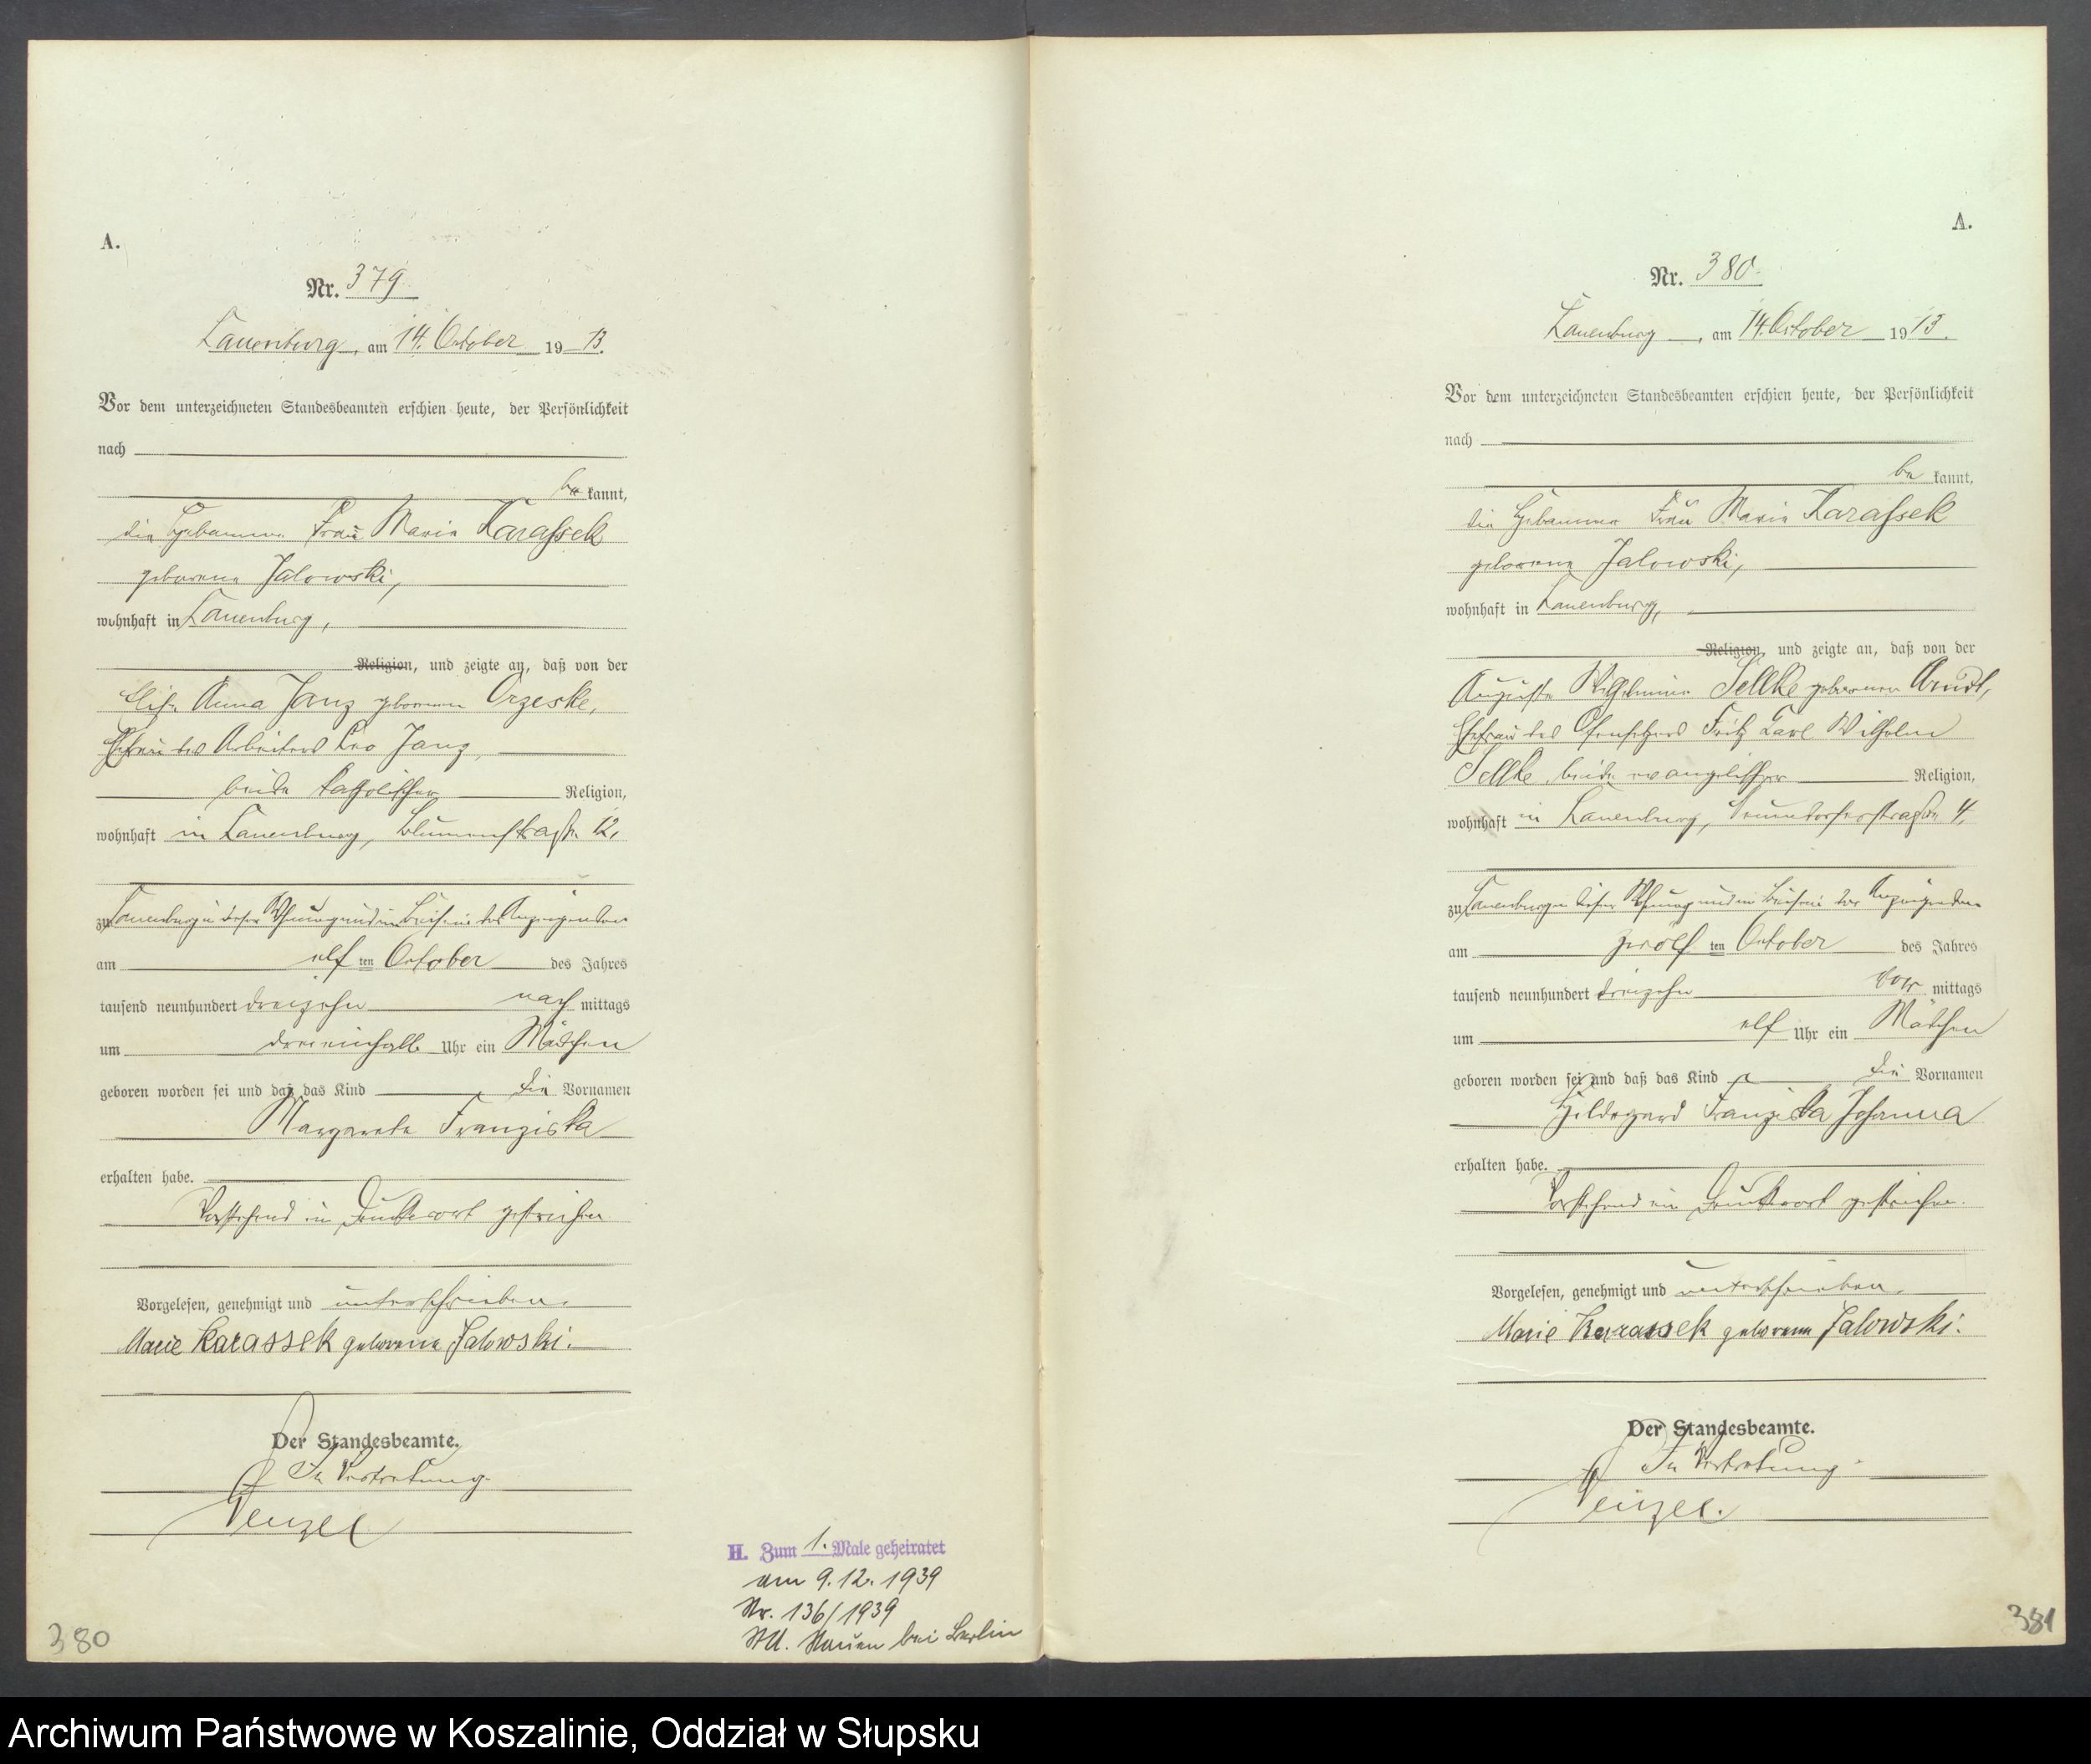 A.
Nr. 379.
Lauenburg, am 14. October 1913.
Vor dem unterzeichneten Standesbeamten erschien heute, der Persönlichkeit
nach
be kannt,
die Hebamme Frau Marie Karassek
geborene Jalowski,
wohnhaft in Lauenburg,
Religion, und zeigte an, daß von der
Anna Janz geborenen Orzeske,
Ehefrau des Arbeiters Leo Janz,
beide katholischer Religion,
wohnhaft in Lauenburg, Blumenstraße 12,
zu Lauenburg in dieser Wohnung und im Beisein der Anzeigenden
am elf ten October des Jahres
tausend neunhundert dreizehn nach mittags
um dreieinhalb Uhr ein Mädchen
geboren worden sei und daß das Kind die Vornamen
Margarete Franziska
erhalten habe.
Vorstehend ein Druckwort gestrichen
Vorgelesen, genehmigt und unterschrieben.
Marie Karassek geborene Jalowski.
Der Standesbeamte.
In Vertretung.
Wenzel
H. Zum 1. Male geheiratet
am 9.12.1939
Nr. 136/1939
StA. Nauen bei Berlin
380
A.
Nr. 380.
Lauenburg, am 14. October 1913.
Vor dem unterzeichneten Standesbeamten erschien heute, der Persönlichkeit
nach
be kannt,
die Hebamme Frau Marie Karassek
geborene Jalowski,
wohnhaft in Lauenburg,
Religion, und zeigte an, daß von der
Auguste Wilhelmine Sellke geborenen Arndt,
Ehefrau des Ofensetzers Fritz Carl Wilhelm
Sellke, beide evangelischer Religion,
wohnhaft in Lauenburg, Neuendorferstraße 4,
zu Lauenburg in dieser Wohnung und im Beisein der Anzeigenden
am zwölf ten October des Jahres
tausend neunhundert dreizehn vor mittags
um elf Uhr ein Mädchen
geboren worden sei und daß das Kind die Vornamen
Hildegard Franziska Johanna
erhalten habe.
Vorstehend ein Druckwort gestrichen.
Vorgelesen, genehmigt und unterschrieben.
Marie Karassek geborene Jalowski.
Der Standesbeamte.
In Vertretung.
Wenzel.
381
Archiwum Państwowe w Koszalinie, Oddział w Słupsku